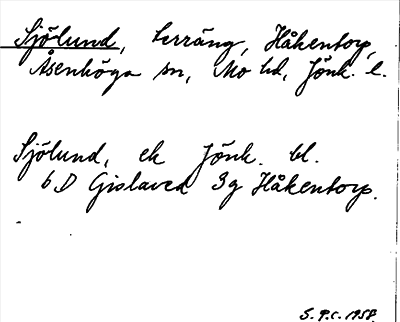 Sjölund, terräng, Håkentorp,
Åsenhöga sn, Mo hd, Jönk. l.
Sjölund, ek Jönk. bl.
6 D Gislaved 3g Håkentorp.
S. P.C. 1958.